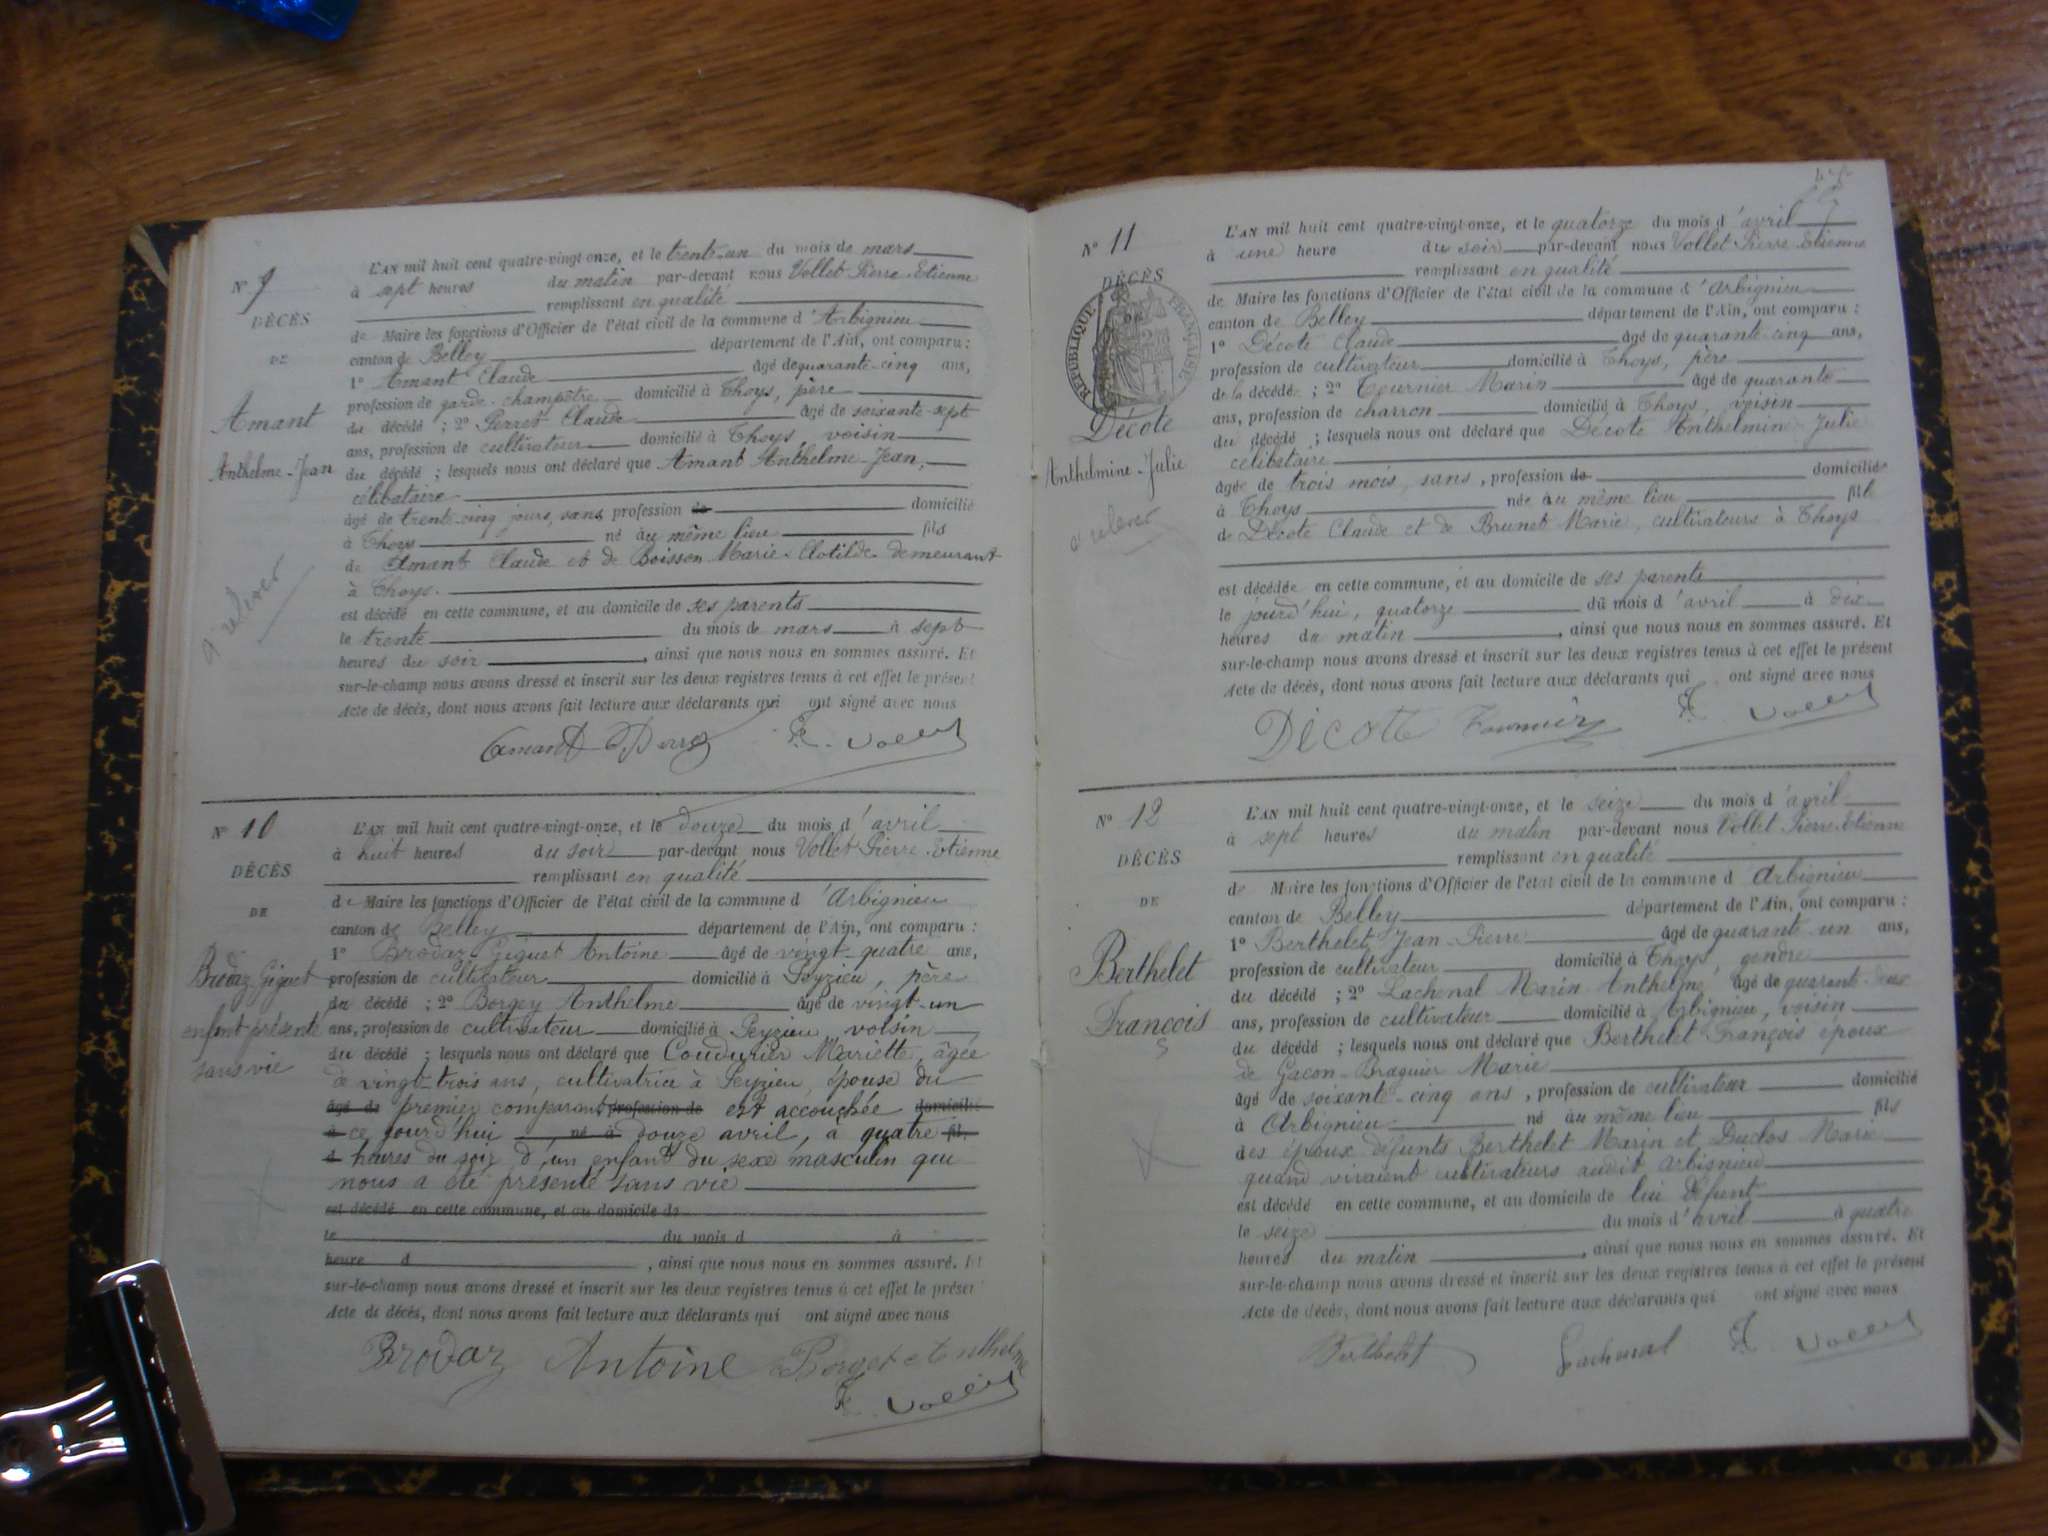 N° 9
DÉCÈS
DE
Amant
Anthelme-Jean
à relever
L'AN mil huit cent quatre-vingt-onze, et le trente-un du mois de mars
à sept heures du matin par-devant nous Vollet Pierre-Etienne
remplissant en qualité
de Maire les fonctions d'Officier de l'état civil de la commune d'Arbignieu
canton de Belley département de l'Ain, ont comparu :
1° Amant Claude âgé de quarante-cinq ans,
profession de garde-champêtre domicilié à Thoys, père
du décédé ; 2° Perret Claude âgé de soixante-sept
ans, profession de cultivateur domicilié à Thoys, voisin
du décédé ; lesquels nous ont déclaré que Amant Anthelme-Jean,
célibataire
âgé de trente-cinq jours, sans profession de domicilié
à Thoys né au même lieu fils
de Amant Claude et de Boisson Marie-Clotilde demeurant
à Thoys.
est décédé en cette commune, et au domicile de ses parents
le trente du mois de mars à sept
heures du soir, ainsi que nous nous en sommes assuré. Et
sur-le-champ nous avons dressé et inscrit sur les deux registres tenus à cet effet le présent
Acte de décès, dont nous avons fait lecture aux déclarants qui ont signé avec nous
Amant Perret Vollet
N° 10
DÉCÈS
DE
Brodaz Giguet
enfant présenté
sans vie
L'AN mil huit cent quatre-vingt-onze, et le douze du mois d'avril
à huit heures du soir par-devant nous Vollet Pierre-Etienne
remplissant en qualité
de Maire les fonctions d'Officier de l'état civil de la commune d'Arbignieu
canton de Belley département de l'Ain, ont comparu :
1° Brodaz Giguet Antoine âgé de vingt-quatre ans,
profession de cultivateur domicilié à Peyzieu, père
du décédé ; 2° Borgey Anthelme âgé de vingt-un
ans, profession de cultivateur domicilié à Peyzieu, voisin
du décédé ; lesquels nous ont déclaré que Coudurier Mariette, âgée
de vingt-trois ans, cultivatrice à Peyzieu, épouse du
âgé de premier comparant profession de est accouchée domicilié
à ce jourd'hui né à douze avril, à quatre fil
d heures du soir, d'un enfant du sexe masculin qui
nous a été présenté sans vie
est décédé en cette commune, et au domicile de
le du mois d à
heure d, ainsi que nous nous en sommes assuré. Et
sur-le-champ nous avons dressé et inscrit sur les deux registres tenus à cet effet le présent
Acte de décès, dont nous avons fait lecture aux déclarants qui ont signé avec nous
Brodaz Antoine Borgey Anthelme
Vollet
N° 11
DÉCÈS
DE
RÉPUBLIQUE FRANÇAISE
Décote
Anthelmine-Julie
à relever
L'AN mil huit cent quatre-vingt-onze, et le quatorze du mois d'avril
à une heure du soir par-devant nous Vollet Pierre-Etienne
remplissant en qualité
de Maire les fonctions d'Officier de l'état civil de la commune d'Arbignieu
canton de Belley département de l'Ain, ont comparu :
1° Décote Claude âgé de quarante-cinq ans,
profession de cultivateur domicilié à Thoys, père
de la décédée ; 2° Tournier Marin âgé de quarante
ans, profession de charron domicilié à Thoys, voisin
du décédé ; lesquels nous ont déclaré que Décote Anthelmine-Julie
célibataire
âgée de trois mois, sans, profession de domiciliée
à Thoys née au même lieu fille
de Décote Claude et de Brunet Marie, cultivateurs à Thoys
est décédée en cette commune, et au domicile de ses parents
le jourd'hui, quatorze du mois d'avril à dix
heures du matin, ainsi que nous nous en sommes assuré. Et
sur-le-champ nous avons dressé et inscrit sur les deux registres tenus à cet effet le présent
Acte de décès, dont nous avons fait lecture aux déclarants qui ont signé avec nous
Décote Tournier Vollet
N° 12
DÉCÈS
DE
Berthelet
François
L'AN mil huit cent quatre-vingt-onze, et le seize du mois d'avril
à sept heures du matin par-devant nous Vollet Pierre-Etienne
remplissant en qualité
de Maire les fonctions d'Officier de l'état civil de la commune d'Arbignieu
canton de Belley département de l'Ain, ont comparu :
1° Berthelet Jean-Pierre âgé de quarante-un ans,
profession de cultivateur domicilié à Thoys, gendre
du décédé ; 2° Lachenal Marin Anthelme âgé de quarante-deux
ans, profession de cultivateur domicilié à Arbignieu, voisin
du décédé ; lesquels nous ont déclaré que Berthelet François époux
de Gacon-Braguier Marie
âgé de soixante-cinq ans, profession de cultivateur domicilié
à Arbignieu né au même lieu fils
des époux défunts Berthelet Marin et Duclos Marie
quand vivaient cultivateurs audit Arbignieu
est décédé en cette commune, et au domicile de lui défunt
le seize du mois d'avril à quatre
heures du matin, ainsi que nous nous en sommes assuré. Et
sur-le-champ nous avons dressé et inscrit sur les deux registres tenus à cet effet le présent
Acte de décès, dont nous avons fait lecture aux déclarants qui ont signé avec nous
Berthelet Lachenal Vollet